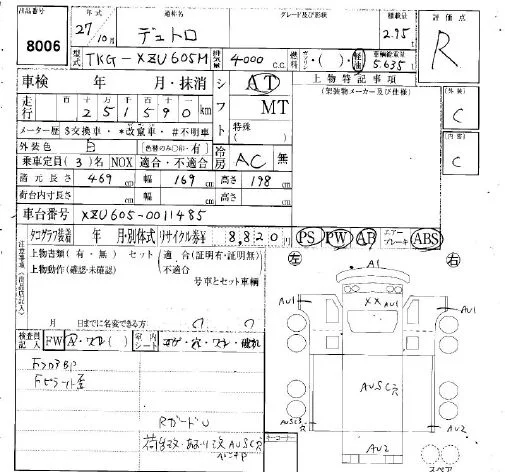 出品番号
8006
年式 通称名 グレード及び形状 積載量
27/10月 デュトロ 2.95t
型式 TKG-XZU605M 排気量 4000 C.C 燃料 ガソリン・( )・軽油 車輌総重量 5.635t
評価点
R
車検 年 月・抹消 シフト AT 上物特記事項
走行 百 十 万 千 百 十 251590 km MT (架装物メーカー及び仕様)
(外装)
C
メーター歴 $交換車・*改竄車・#不明車 特殊( )
外装色 白 (色替のみ〇印・有)
(内装)
C
乗車定員(3)名 NOX 適合・不適合 冷房 AC 無
諸元長さ 469cm 幅 169cm 高さ 198cm
荷台内寸長さ cm 幅 cm 高さ cm
車台番号 XZU605-0011485
タコグラフ装着 年 月・別体式 リサイクル券¥ 8,820円 PS PW AB エアーブレーキ ABS
上物書類(有・無) セット 適合(証明有・証明無)
上物動作(確認・未確認) 不適合 号車とセット車輌
左 右
A1
XX AU1
AU1 AU1
月 日までに名変できる方
検査員記入 FW A・ワレ( ) 室内シート コゲ・穴・ワレ・破れ
Fフロア BP
Fピラー歪
AUSC穴
RガードU
AUSC穴 AU2
AU2
スペア